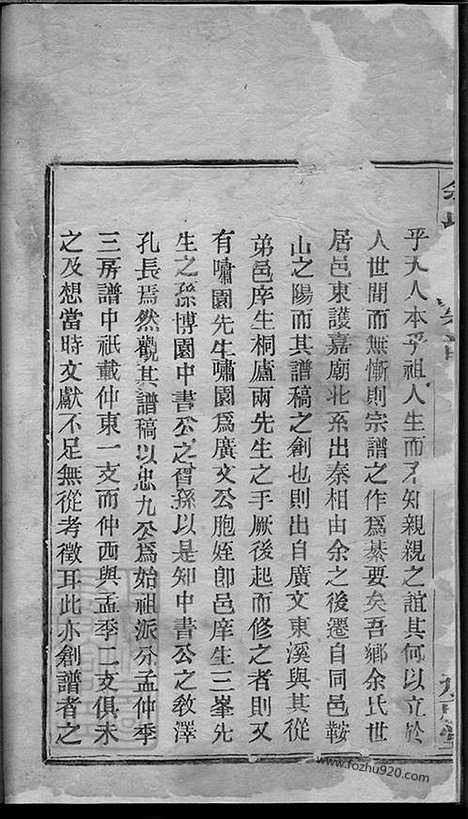 乎天人本乎祖人生而不知親親之誼其何以立於
人世間而無慚則宗譜之作爲綦要矣吾鄉余氏世
居邑東護嘉廟北系出秦相由余之後遷自同邑鞍
山之陽而其譜稿之創也則出自廣文東溪與其從
弟邑庠生桐廬兩先生之手厥後起而修之者則又
有嘯園先生嘯園爲廣文公胞姪卽邑庠生三峯先
生之孫博園中書公之胥孫以是知中書公之敎澤
孔長焉然觀其譜稿以忠九公爲始祖派分孟仲季
三房譜中祇載仲東一支而仲西與孟季二支俱未
之及想當時文獻不足無從考徵耳此亦創譜者之
www.fozhu920.com